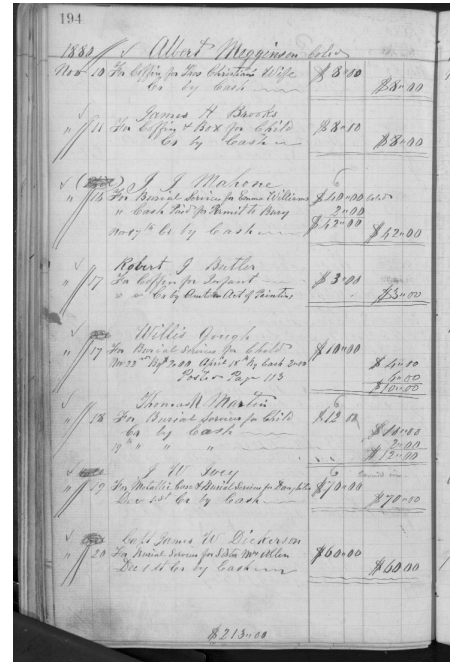 194
1880 Albert Megginson Cold
Nov 10 For Coffin for Two Christians Wife $8.00
Cr by Cash $8.00
James H Brooks
" 11 For Coffin & Box for Child $8.00
Cr by Cash $8.00
J J Mahone
" 16 For Burial Services for Emma Williams $40.00 Cold
" Cash Paid for Permit to Bury 2.00
$42.00
Nov 17th Cr by Cash $42.00
Robert J Butler
" 17 For Coffin for Infant $3.00
" " Cr by Amt on Act of Painters $3.00
Willis Gough
" 17 For Burial Services for Child $10.00
Nov 22nd By $ 2.00 April 18th By Cash 2.00 $4.00
Posted Page 113 6.00
$10.00
Thomas Martin
" 18 For Burial Services for Child $12.00
Cr by Cash $10.00
19th " " " 2.00
$12.00
J W Ivey
" 19 For Metallic Case & Burial Services for Daughter $70.00
Dec 1st Cr by Cash $70.00
Capt James W Dickerson
" 20 For Burial Services for Sister Mrs Allen $60.00
Dec 1st Cr by Cash $60.00
$213.00